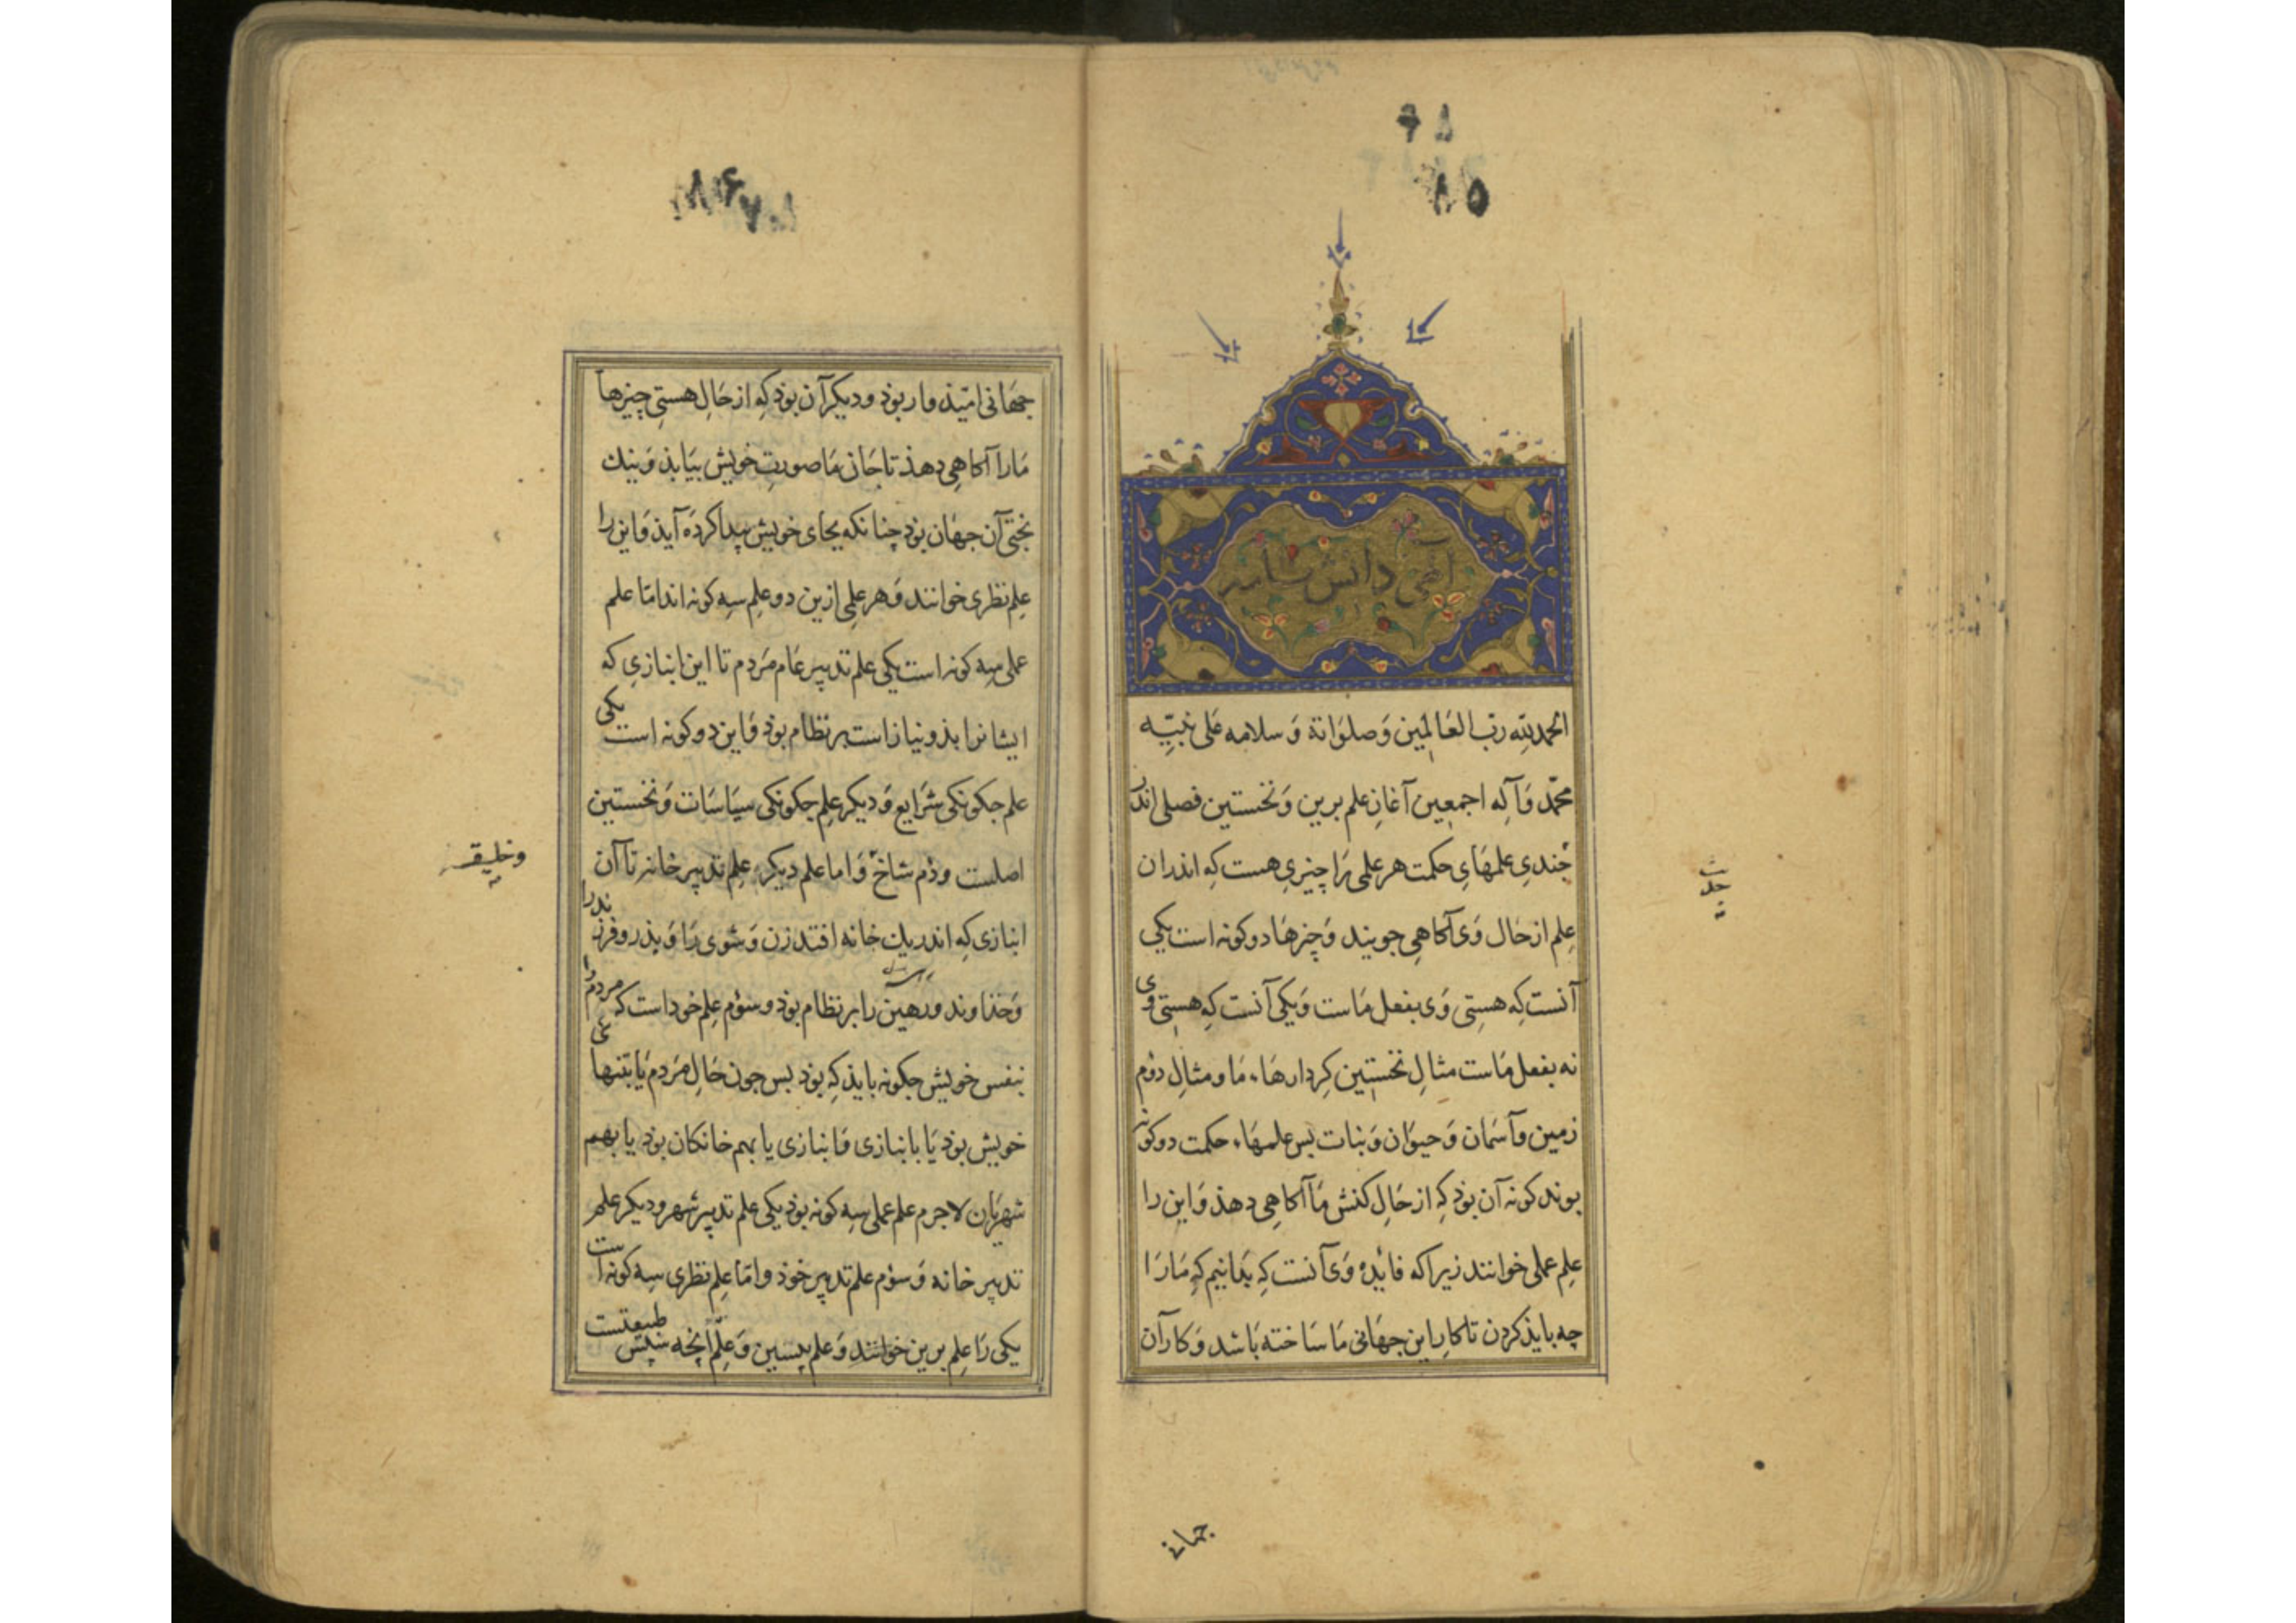 ۸۵
الهی دانش نامه
الحمدلله رب العالمین وصلواته وسلامه علی نبیه
محمد وآله اجمعین آغاز علم برین ونخستین فصلی اندر
چندی علمهای حکمت هر علمی را چیزی هست که اندران
علم از حال وی آکاهی جویند وچیزها دوکونه است یکی
آنست که هستی وی بفعل ماست ویکی آنست که هستی وی
نه بفعل ماست مثال نخستین کردارهاء ما ومثال دوم
زمین وآسمان وحیوان ونبات بس علمهاء حکمت دوکونه
بوند کونه آن بوذ که از حال کنش ما آکاهی دهذ واین را
علم عملی خوانند زیرا که فائده وی آنست که بدانیم که ما را
چه بایذ کردن تا کار این جهانی ما ساخته باشد وکار آن
جهانی
جهانی امیذوار بوذ ودیکر آن بوذ که از حال هستی چیزها
ما را آکاهی دهذ تا جان ما صورت خویش بیابذ ونیك
بختی آن جهان بوذ چنانکه بجای خویش پیدا کرده آیذ واین را
علم نظری خوانند وهر علمی ازین دو علم سه کونه اند اما علم
عملی سه کونه است یکی علم تدبیر عام مردم تا این انبازی که
ایشانرا بذو نیاز است بر نظام بوذ واین دوکونه است یکی
علم جکونکی شرایع ودیکر علم جکونکی سیاسات ونخستین
اصلست ودوم شاخ واما علم دیکر علم تدبیر خانه تا آن
وخلیفه
انبازی که اندر یك خانه افتد زن وشوی را وپذر وفرزند را
وخذاوند ورهی را بر نظام بوذ وسوم علم خود است که مردم
بنفس خویش جکونه بایذ که بوذ بس جون حال مردم یا بتنها
خویش بوذ یا بانبازی وانبازی یا بهم خانکان بوذ یا بهم
شهریان لاجرم علم عملی سه کونه بوذ یکی علم تدبیر شهر ودیکر علم
تدبیر خانه وسوم علم تدبیر خوذ واما علم نظری سه کونه است
یکی را علم برین خوانند وعلم پیشین وعلم آنچه سپس طبیعتست